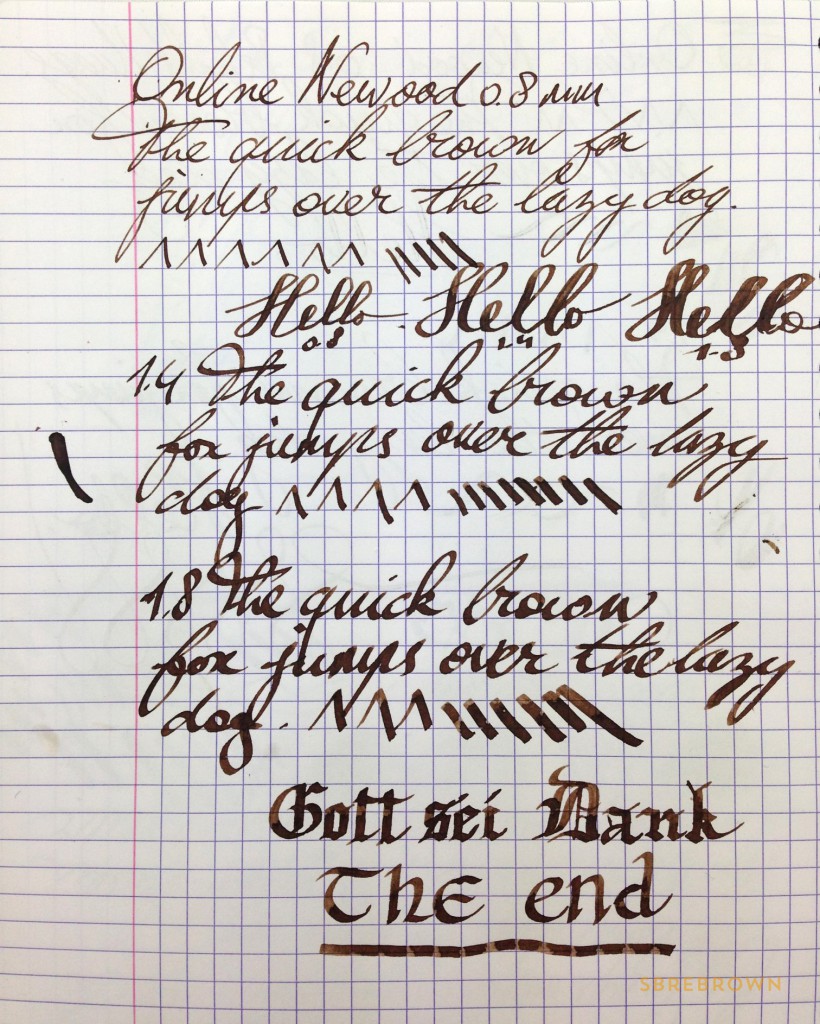 Online Newood 0.8 mm
the quick brown fox
jumps over the lazy dog.
Hello Hello Hello
0.8 1.4 1.8
1.4 The quick brown
fox jumps over the lazy
dog
1.8 The quick brown
fox jumps over the lazy
dog.
Gott sei Dank
The end
SBREBROWN